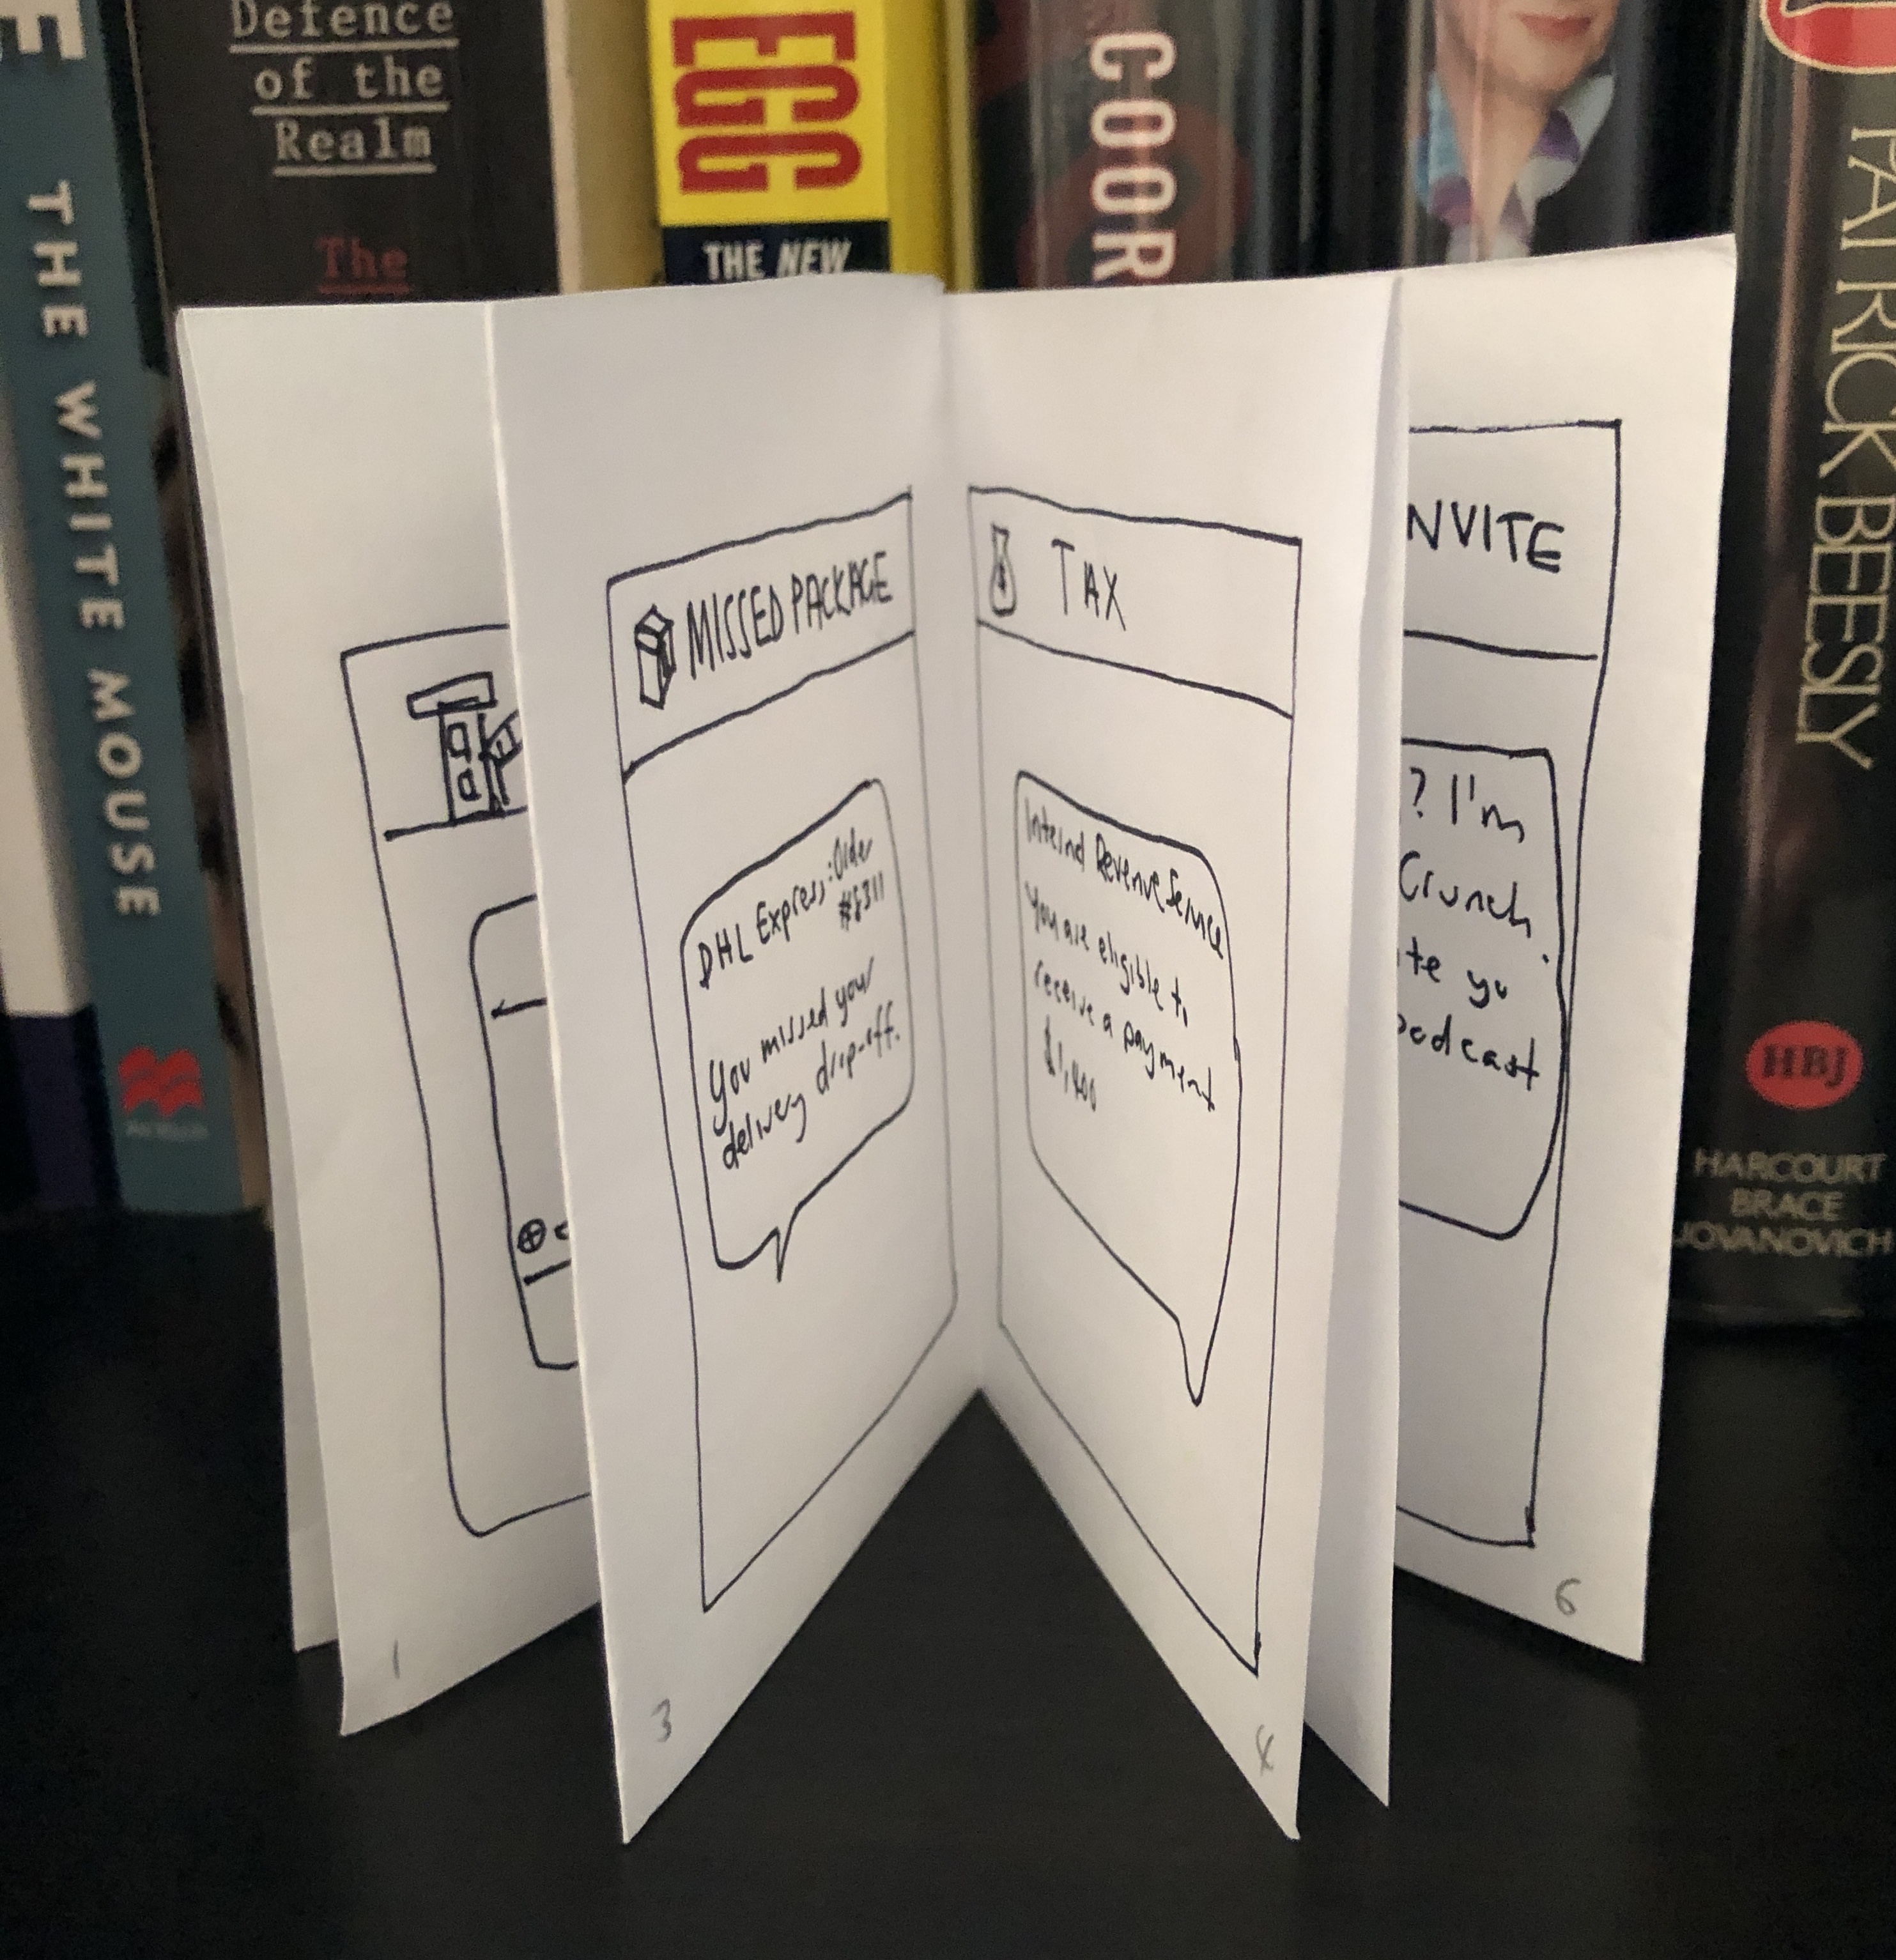 THE WHITE MOUSE
Defence
of the
Realm
The
EGG
THE NEW
COOR
PATRICK BEESLY
HBJ
HARCOURT
BRACE
JOVANOVICH
1
MISSED PACKAGE
DHL Express: Order
#8311
You missed your
delivery drop-off.
3
$ TAX
Internal Revenue Service
You are eligible to
receive a payment
$1,400
4
NVITE
? I'm
Crunch.
te yo
podcast
6